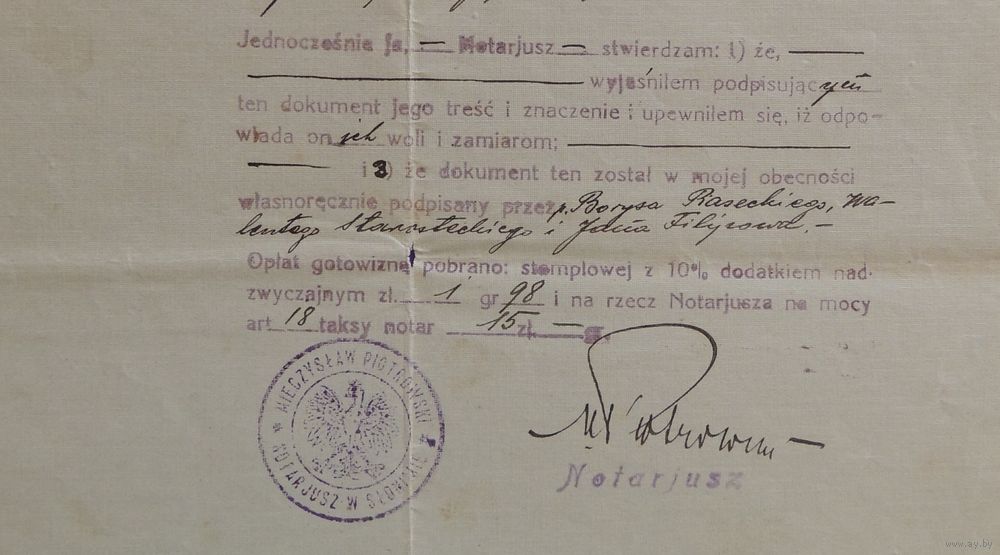 Jednocześnie ja, — Notarjusz — stwierdzam: 1) że, —
— wyjaśniłem podpisującym
ten dokument jego treść i znaczenie i upewniłem się, iż odpo-
wiada on ich woli i zamiarom; —
— i 3) że dokument ten został w mojej obecności
własnoręcznie podpisany przez p. Borysa Piaseckiego, Wa-
lentego Starosteckiego i Jana Filipowa. —
Opłat gotowizną pobrano: stemplowej z 10% dodatkiem nad-
zwyczajnym zł. 1 gr 98 i na rzecz Notarjusza na mocy
art 18 taksy notar 15 zł. — gr.
MIECZYSŁAW PIOTROWSKI
NOTARJUSZ W SŁONIMIE
Notarjusz
www.ay.by